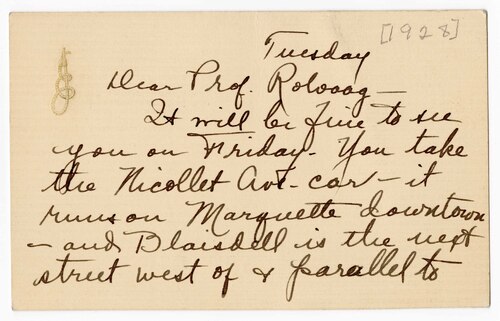 [1928]
Tuesday
Dear Prof. Rolvaag –
It will be fine to see
you on Friday. You take
the Nicollet Ave. car – it
runs on Marquette downtown
– and Blaisdell is the next
street west of & parallel to